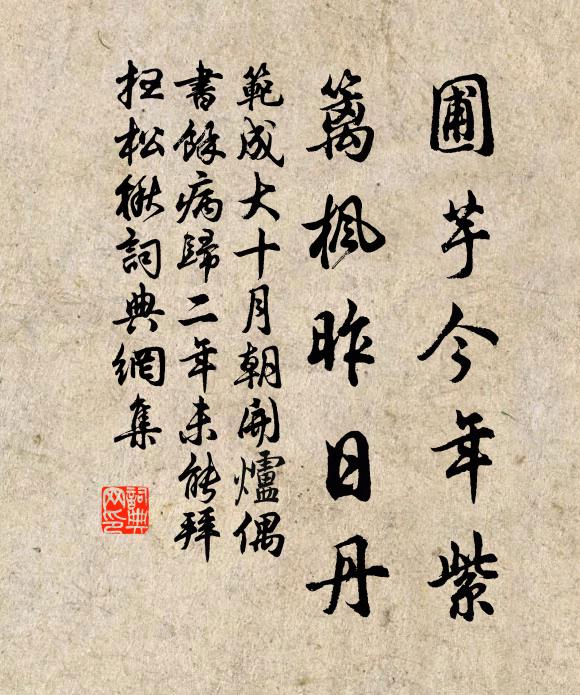 圃芋今年紫
籬楓昨日丹
範成大十月朝開爐偶
書餘病歸二年未能拜
抂松楸詞典網集
詞典
网印